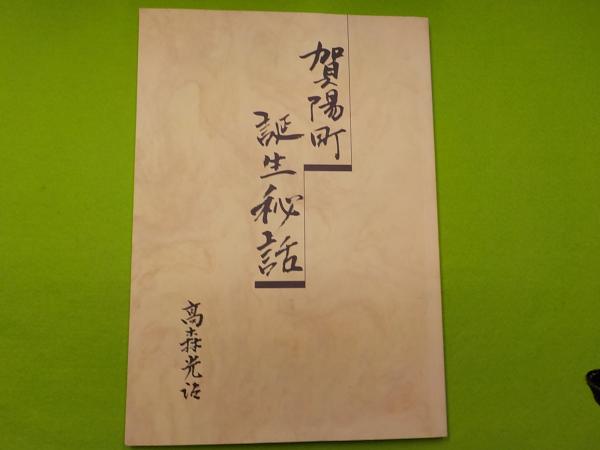 賀陽町
誕生秘話
高森光詔